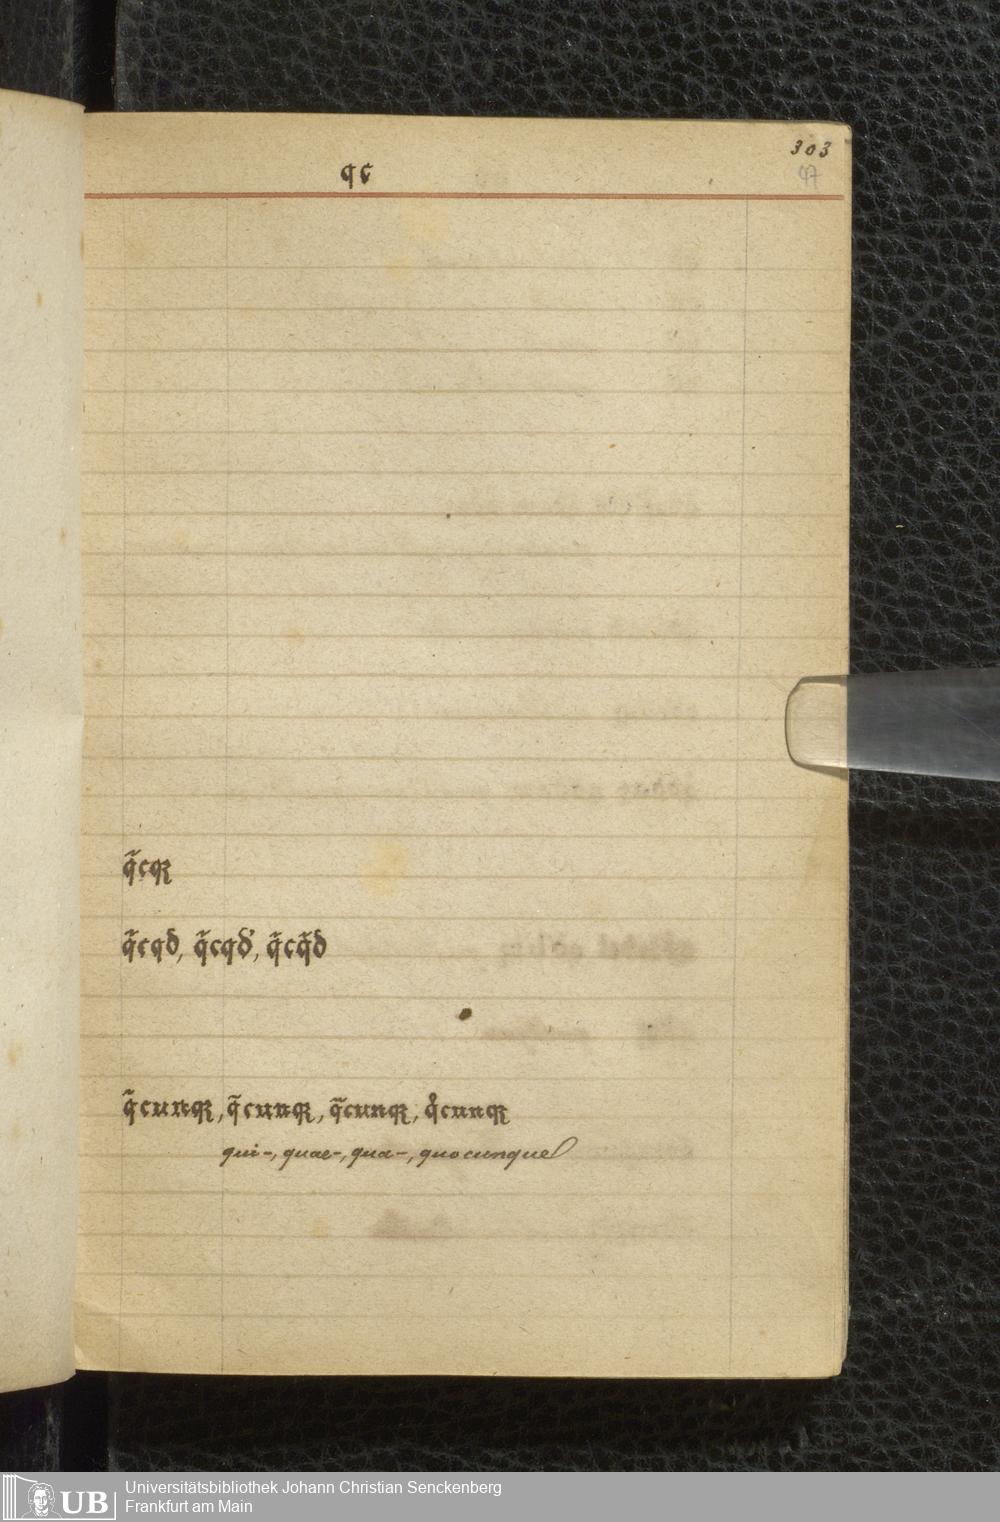 303
qc
q̃cqꝫ
q̃cqđ, q̃cqđ, q̃cq̃đ
q̃cunqꝫ, q̃cunqꝫ, q̃cunqꝫ, q̊cunqꝫ
qui-, quae-, qua-, quocunque
UB
Universitätsbibliothek Johann Christian Senckenberg
Frankfurt am Main